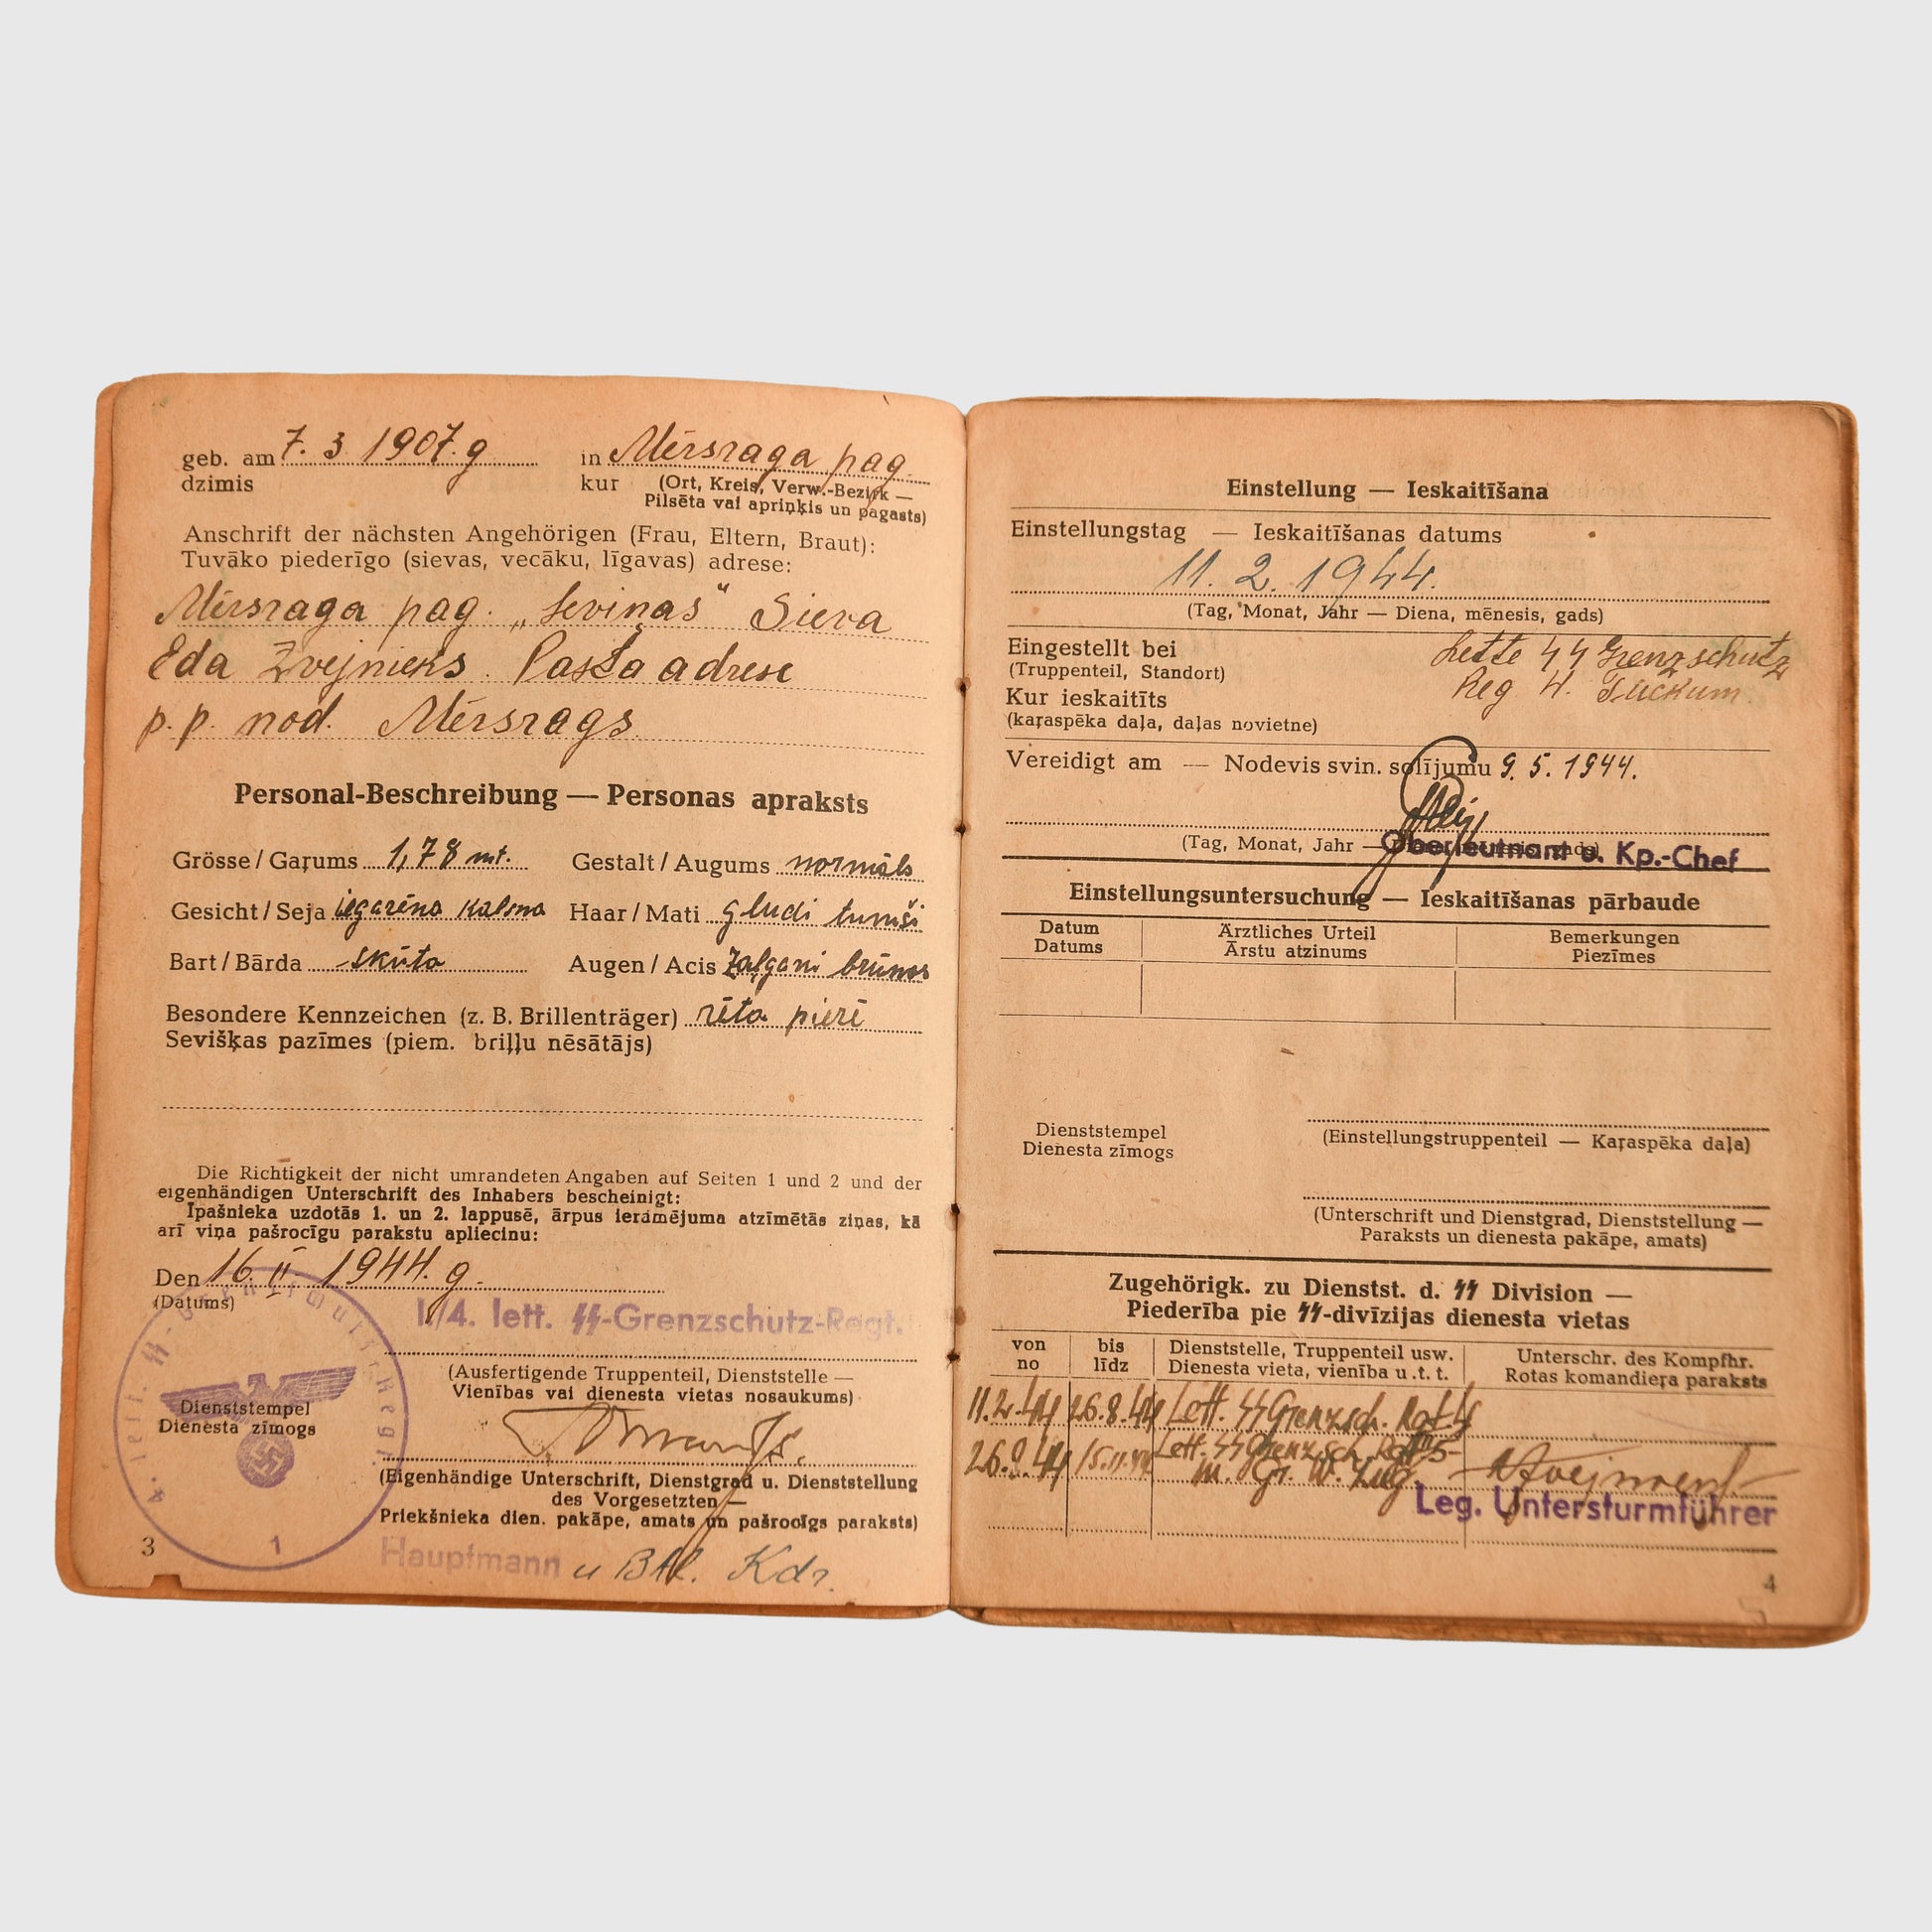 geb. am 7. 3 1907. g in Mērsraga pag.
dzimis kur (Ort, Kreis, Verw.-Bezirk —
Pilsēta vai apriņķis un pagasts)
Anschrift der nächsten Angehörigen (Frau, Eltern, Braut):
Tuvāko piederīgo (sievas, vecāku, līgavas) adrese:
Mērsraga pag. Sieva
Eda Zvejnieks. Pasta adrese
p. p. nod. Mērsrags
Personal-Beschreibung — Personas apraksts
Grösse / Gaŗums 1,78 mt. Gestalt / Augums normāls
Gesicht / Seja iegarēna kalsna Haar / Mati gludi tumši
Bart / Bārda skūta Augen / Acis zaļgani brūnas
Besondere Kennzeichen (z. B. Brillenträger) rēta pierē
Sevišķas pazīmes (piem. briļļu nēsātājs)
Die Richtigkeit der nicht umrandeten Angaben auf Seiten 1 und 2 und der
eigenhändigen Unterschrift des Inhabers bescheinigt:
Īpašnieka uzdotās 1. un 2. lappusē, ārpus ierāmējuma atzīmētās ziņas, kā
arī viņa pašrocīgu parakstu apliecinu:
Den 16. II 1944. g.
(Datums)
I./4. lett. SS-Grenzschutz-Regt.
(Ausfertigende Truppenteil, Dienststelle —
Vienības vai dienesta vietas nosaukums)
Dienststempel
Dienesta zīmogs
(Eigenhändige Unterschrift, Dienstgrad u. Dienststellung
des Vorgesetzten —
Priekšnieka dien. pakāpe, amats un pašrocīgs paraksts)
Hauptmann u Btl. Kdr.
3
1
Einstellung — Ieskaitīšana
Einstellungstag — Ieskaitīšanas datums
11. 2. 1944.
(Tag, Monat, Jahr — Diena, mēnesis, gads)
Eingestellt bei Lette SS Grenzschutz
(Truppenteil, Standort) Reg 4. Tuckum
Kur ieskaitīts
(kaŗaspēka daļa, daļas novietne)
Vereidigt am — Nodevis svin. solījumu 9. 5. 1944.
(Tag, Monat, Jahr —
Oberleutnant u. Kp.-Chef
Einstellungsuntersuchung — Ieskaitīšanas pārbaude
Datum Ärztliches Urteil Bemerkungen
Datums Ārstu atzinums Piezīmes
Dienststempel
Dienesta zīmogs
(Einstellungstruppenteil — Kaŗaspēka daļa)
(Unterschrift und Dienstgrad, Dienststellung —
Paraksts un dienesta pakāpe, amats)
Zugehörigk. zu Dienstst. d. SS Division —
Piederība pie SS-divīzijas dienesta vietas
von bis Dienststelle, Truppenteil usw. Unterschr. des Kompfhr.
no līdz Dienesta vieta, vienība u .t. t. Rotas komandieŗa paraksts
11.2.44 26.8.44 Lett. SS Grenzsch. Rgt. 4
26.8.44 15.11.44 Lett. SS Grenzsch. Rgt 5
Leg. Untersturmführer
4